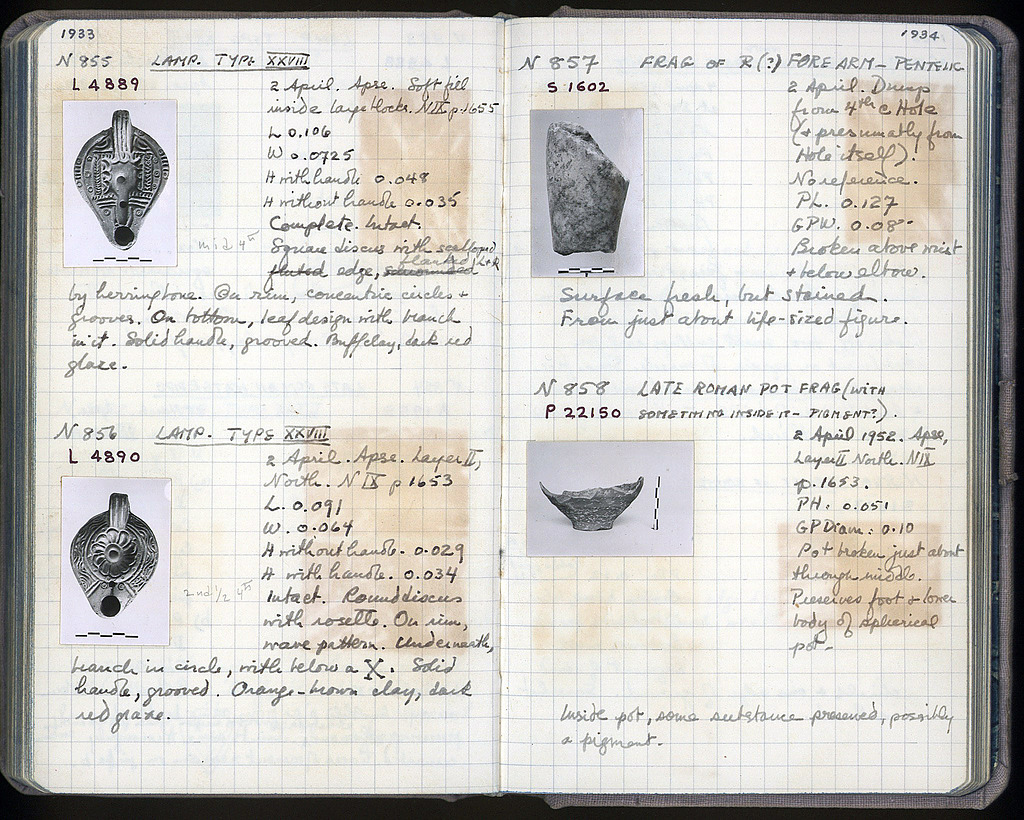 1933
N 855 LAMP. TYPE XXVIII
L 4889
2 April. Apse. Soft fill
inside large blocks. N IX p. 1655
L 0.106
W 0.0725
H with handle 0.048
H without handle 0.035
Complete. Intact.
mid 4th
Square discus with scalloped
flanked L+R
fluted edge, surrounded
by herringbone. On rim, concentric circles +
grooves. On bottom, leaf design with branch
in it. Solid handle, grooved. Buff clay, dark red
glaze.
N 856 LAMP. TYPE XXVIII
L 4890
2 April. Apse. Layer II,
North. N IX p 1653
L. 0.091
W. 0.064
H without handle. 0.029
H with handle. 0.034
2nd 1/2 4th
Intact. Round discus
with rosette. On rim,
wave pattern. Underneath,
branch in circle, with below a X. Solid
handle, grooved. Orange-brown clay, dark
red glaze.
1934
N 857 FRAG OF R(?) FOREARM - PENTELIC
S 1602
2 April. Dump
from 4th c Hole
(+ presumably from
Hole itself).
No reference.
PL. 0.127
GPW. 0.08
Broken above wrist
+ below elbow.
Surface fresh, but stained.
From just about life-sized figure.
N 858 LATE ROMAN POT FRAG (WITH
P 22150 SOMETHING INSIDE IT - PIGMENT?).
2 April 1952. Apse,
Layer II North. N IX
p. 1653.
PH: 0.051
GPDiam: 0.10
Pot broken just about
through middle.
Preserves foot + lower
body of spherical
pot-
Inside pot, some substance preserved, possibly
a pigment.